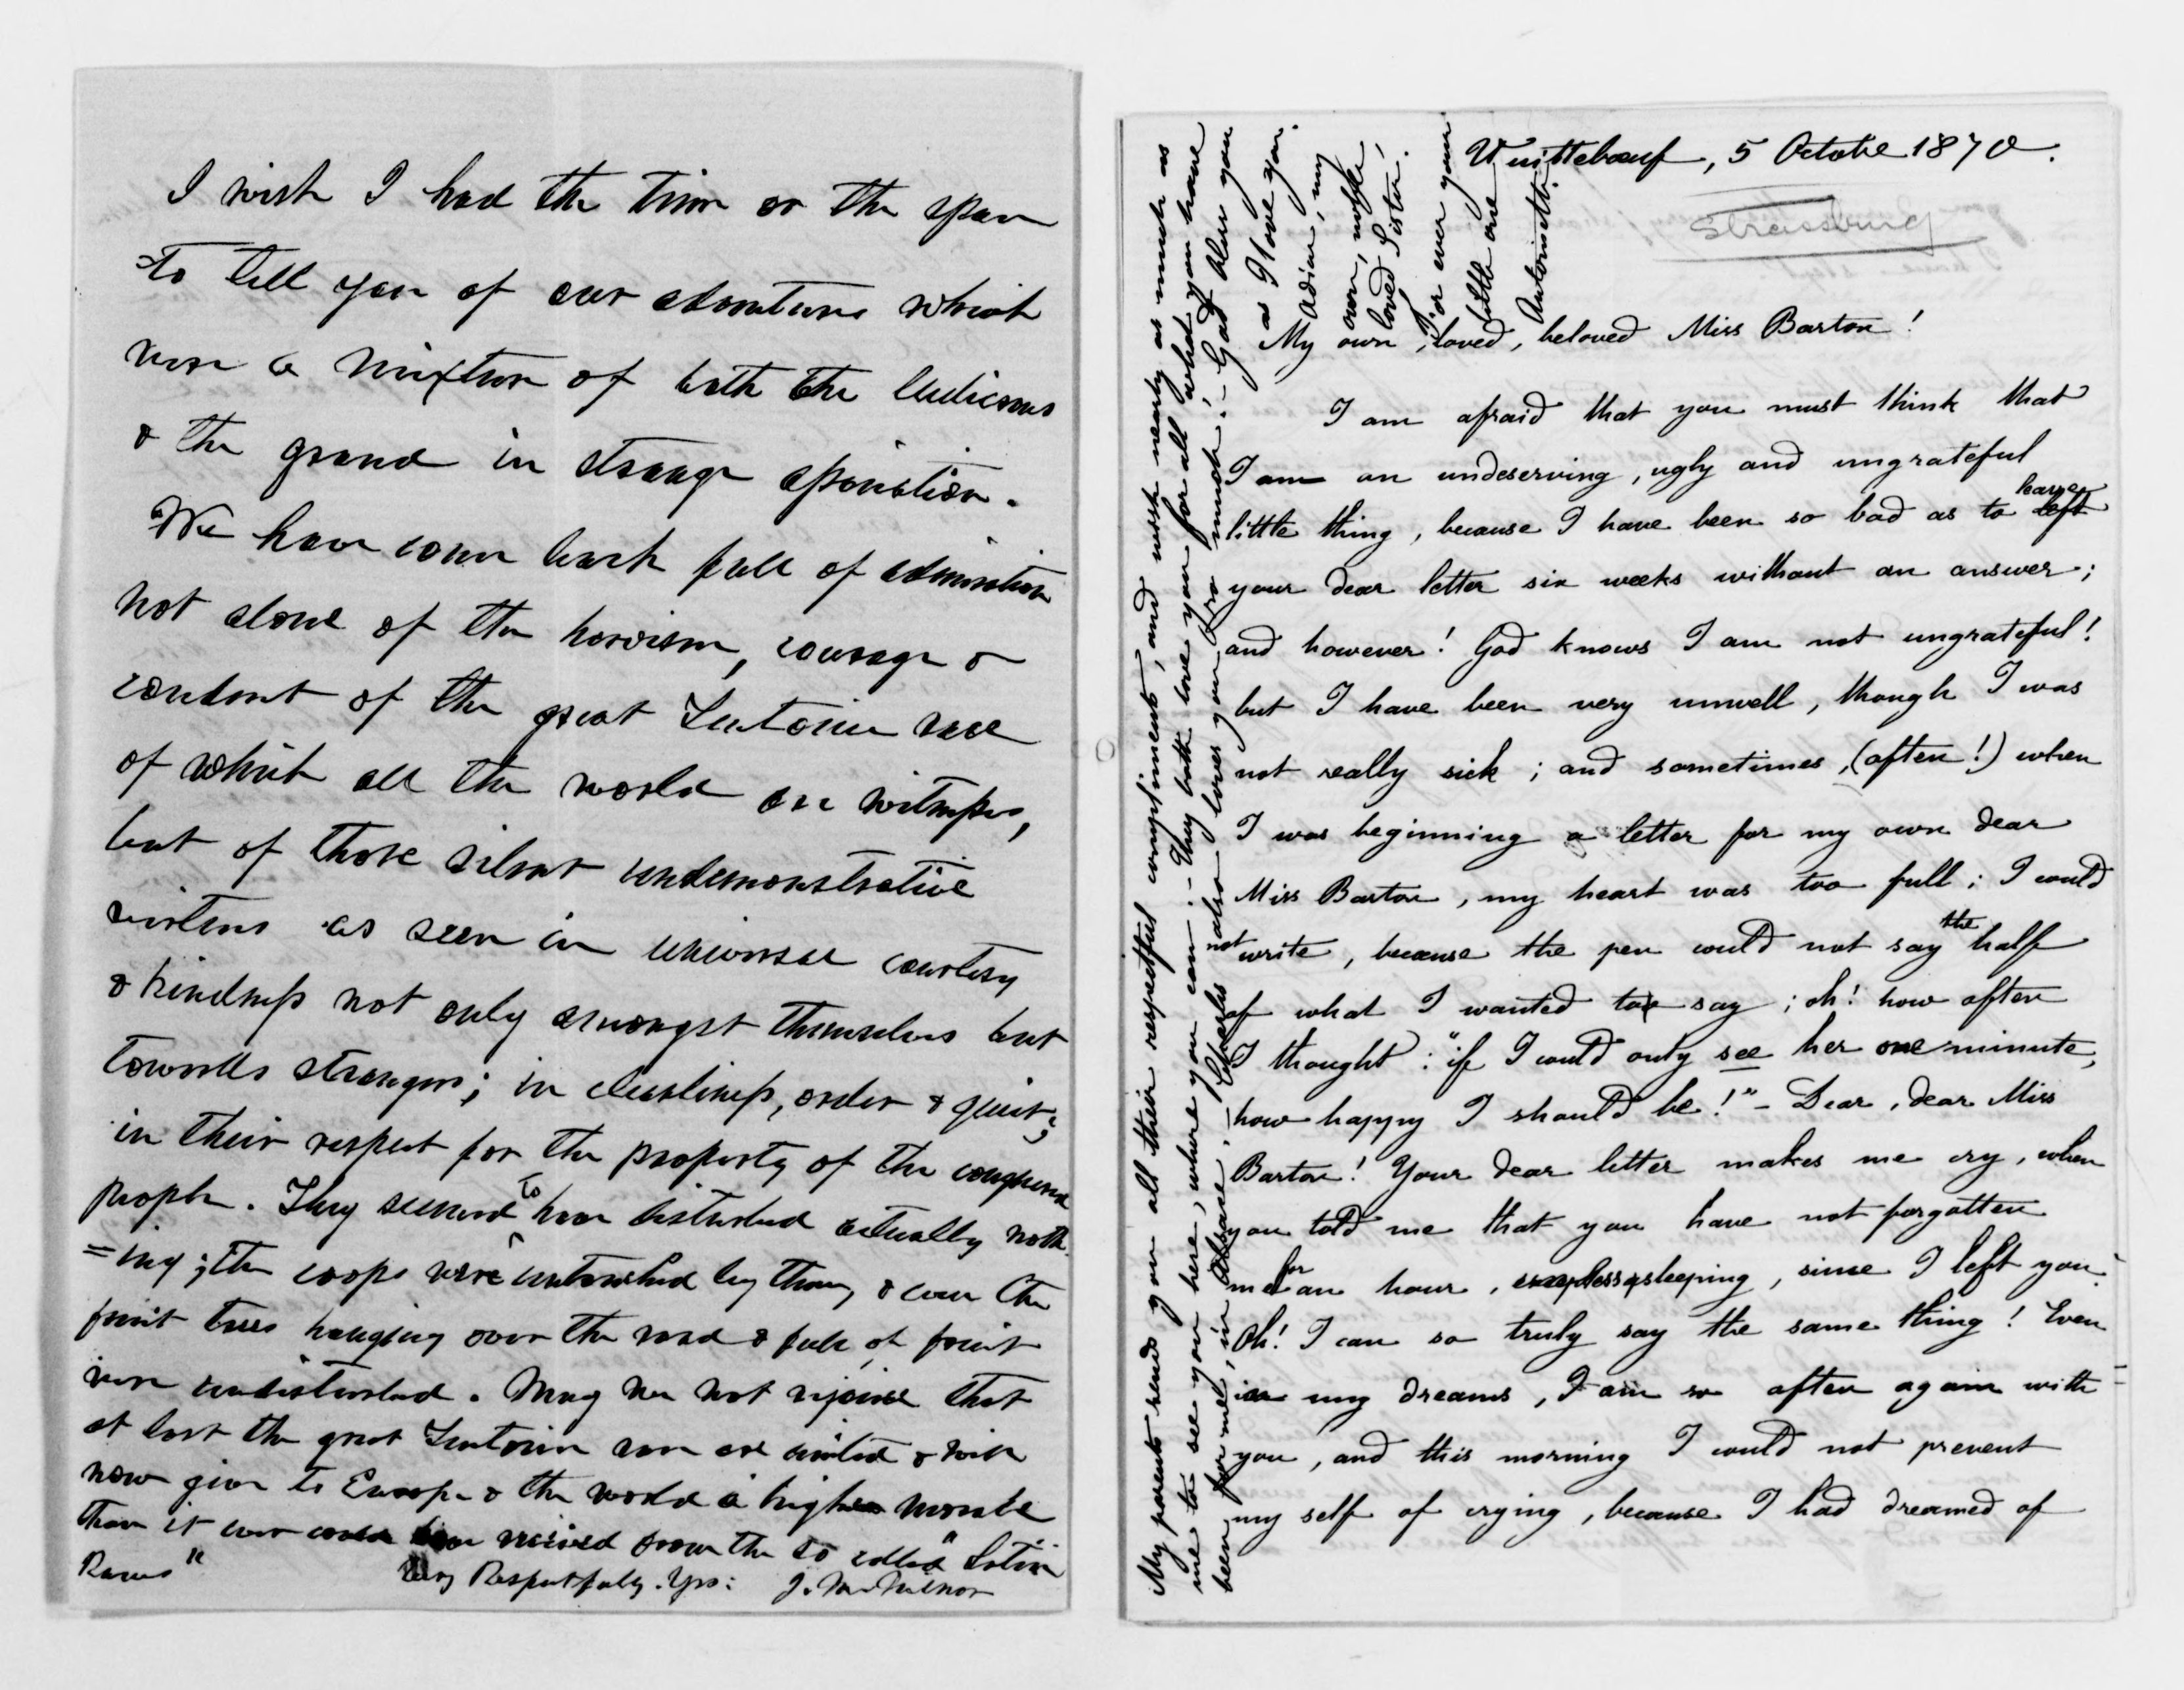 I wish I had the time or the space
to tell you of our adventures which
were a mixture of both the ludicrous
& the grand in strange apposition.
We have come back full of admiration
not alone of the heroism, courage &
conduct of the great Teutonic race
of which all the world are witnesses,
but of those silent undemonstrative
virtues as seen in universal courtesy
& kindness not only amongst themselves but
towards strangers; in cleanliness, order & quiet;
in their respect for the property of the conquered
people. They seemed to have disturbed actually noth
=ing; the coops were untouched by them, & even the
fruit trees hanging over the road & full of fruit
were undisturbed. May we not rejoice that
at last the great Teutonic race are united & will
now give to Europe & the world a higher morale
than it ever could have received from the so called "Latin
Races"
Very Respectfully. Yrs:
Vuittebœuf, 5 Octobre 1870.
Strassburg
My own, loved, beloved Miss Barton!
I am afraid that you must think that
I am an undeserving, ugly and ungrateful
little thing, because I have been so bad as to left leave
your dear letter six weeks without an answer;
and however! God knows I am not ungrateful!
but I have been very unwell, though I was
not really sick; and sometimes, (often!) when
I was beginning a letter for my own dear
Miss Barton, my heart was too full; I could
not write, because the pen could not say the half
of what I wanted to say; oh! how often
I thought: "if I could only see her one minute,
how happy I should be!" - Dear, dear Miss
Barton! Your dear letter makes me cry, when
you told me that you have not forgotten
me for an hour, sleeping, since I left you.
Oh! I can so truly say the same thing! Even
in my dreams, I am so often again with
you, and this morning I could not prevent
my self of crying, because I had dreamed of
My parents sends you all their respectful compliments, and wish nearly as much as
me to see you here, where you can. - They both love you for all what you have
been for me, in Alsace. - Charles also loves you so much! - God bless you
as I love you.
Adieu, my
own, noble,
loved Sister!
For ever your
little one
Antoinette